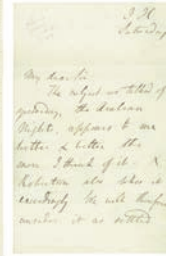 I. H
Saturday
My dear Sir
The subject we talked of
yesterday, the Arabian
Nights, appears to me
better & better the
more I think of it.
Robertson also likes it
exceedingly. We will therefore
consider it as settled